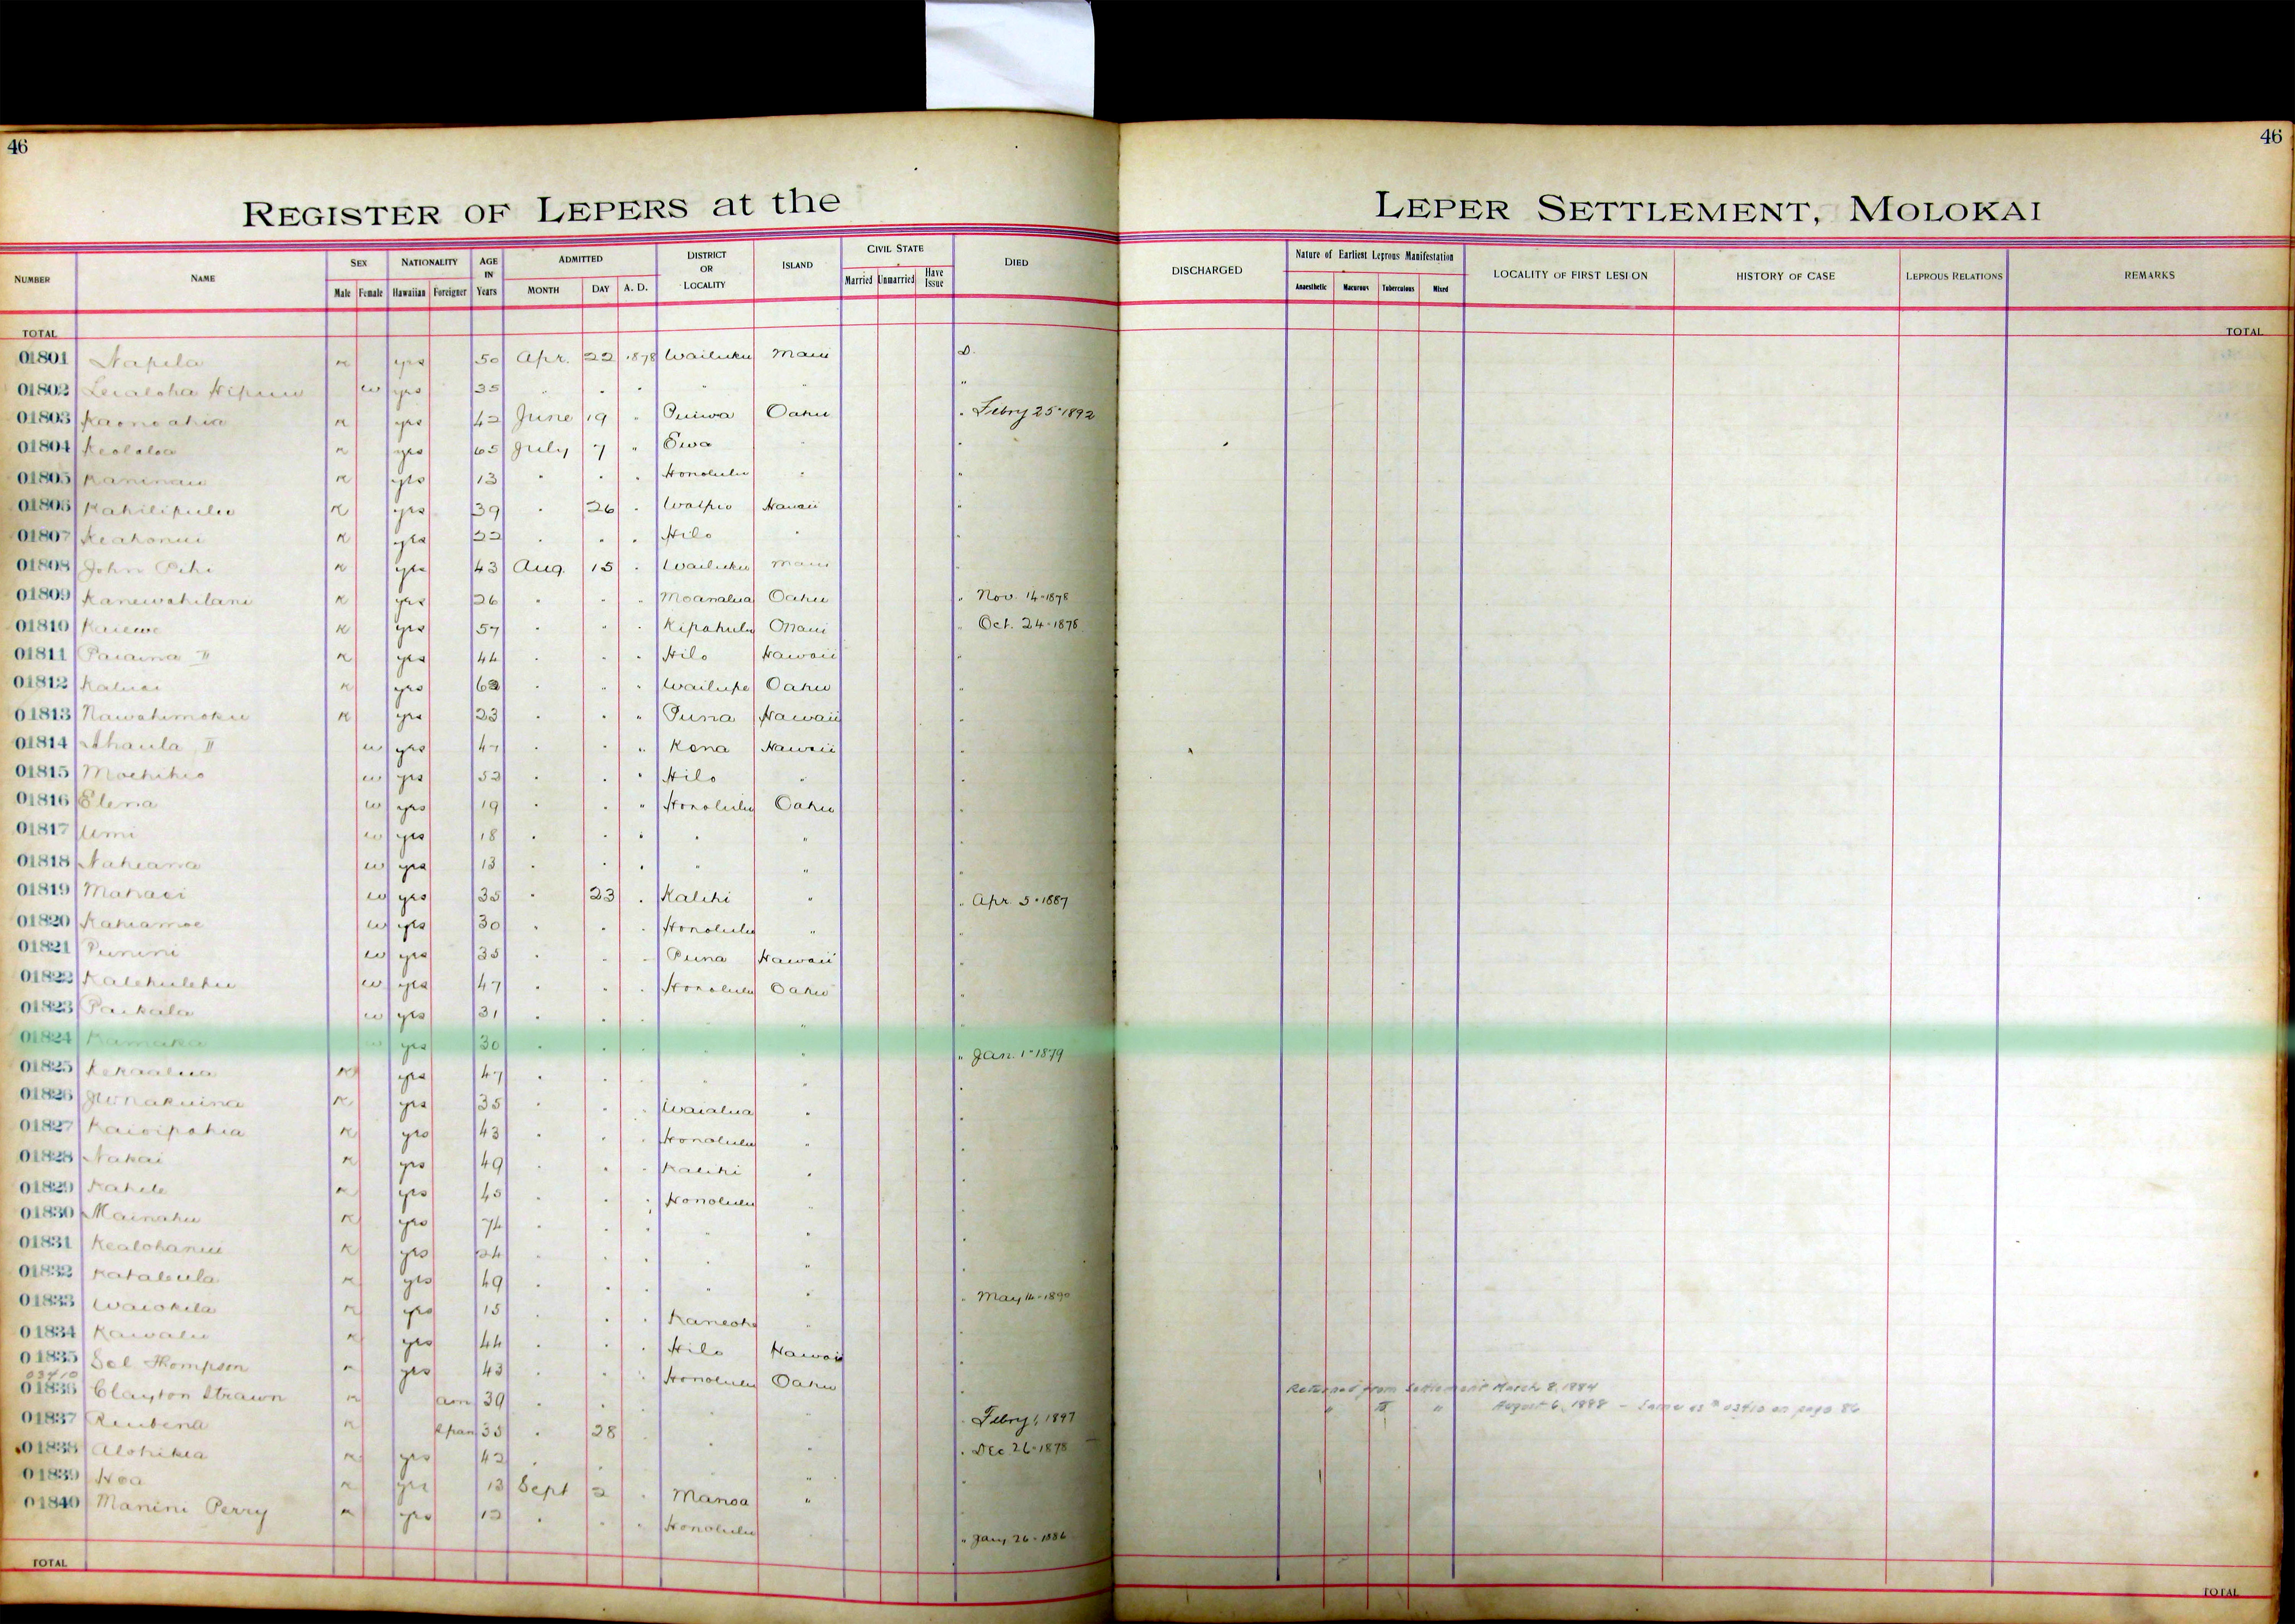 46
46
REGISTER OF LEPERS at the LEPER SETTLEMENT, MOLOKAI
NUMBER NAME SEX NATIONALITY AGE IN Years ADMITTED DISTRICT OR LOCALITY ISLAND CIVIL STATE DIED DISCHARGED Nature of Earliest Leprous Manifestation LOCALITY OF FIRST LESION HISTORY OF CASE LEPROUS RELATIONS REMARKS
Male Female Hawaiian Foreigner MONTH DAY A. D. Married Unmarried Have Issue Anaesthetic Macurous Tuberculous Mixed
TOTAL TOTAL
01801 Napela K yes 50 Apr. 22 1878 Wailuku Maui D.
01802 Lealoha W yes 35 " " " " " "
01803 Kaonoahia K yes 42 June 19 " Puiwa Oahu " Febry 25 1892
01804 Keololoa K yes 65 July 7 " Ewa " "
01805 Kaninau K yes 13 " " " Honolulu " "
01806 Kahilipulu K yes 39 " 26 " Waipio Hawaii "
01807 Keahonui K yes 22 " " " Hilo " "
01808 John K yes 43 Aug. 15 " Wailuku Maui "
01809 Kanewahilani K yes 26 " " " Moanalua Oahu " Nov. 14-1878
01810 Kaiewe K yes 57 " " " Kipahulu Maui " Oct. 24-1878
01811 Paiaina II K yes 44 " " " Hilo Hawaii "
01812 Kaluai K yes 62 " " " Wailupe Oahu "
01813 Nawahimoku K yes 23 " " " Puna Hawaii "
01814 Ahaula II W yes 47 " " " Kona Hawaii "
01815 W yes 52 " " " Hilo " "
01816 Elena W yes 19 " " " Honolulu Oahu "
01817 Umi W yes 18 " " " " " "
01818 Naheana W yes 13 " " " " " "
01819 Mahaei W yes 35 " 23 " Kalihi " " Apr. 5-1887
01820 Kahiamoe W yes 30 " " " Honolulu " "
01821 Punini W yes 35 " " " Puna Hawaii "
01822 Kalehulehu W yes 47 " " " Honolulu Oahu "
01823 Paikala W yes 31 " " " " " "
01824 Kamaka W yes 30 " " " " " " Jan. 1-1879
01825 Kekaalua K yes 47 " " " " " "
01826 K yes 35 " " " Waialua " "
01827 Kaioipohia K yes 43 " " " Honolulu " "
01828 Nakai K yes 49 " " " Kalihi " "
01829 Kahele K yes 45 " " " Honolulu " "
01830 Mainahu K yes 74 " " " " " "
01831 Kealohanui K yes 24 " " " " " "
01832 Kahaleula K yes 49 " " " " " " May 14-1890
01833 Waiokila K yes 15 " " " Kaneohe " "
01834 Kawalu K yes 44 " " " Hilo Hawaii "
01835 Sol Thompson K yes 43 " " " Honolulu Oahu "
03410
01836 Clayton Strawn K am 39 " " " " " " Febry 1, 1897 Returned from Settlement March 8, 1884
" " " August 6, 1888 - Same as # 03410 on page 86
01837 Reubena K Span 35 " 28 " " " " Dec 26-1878
01838 Alohikea K yes 42 " " " " " "
01839 Hoa K yes 13 Sept 2 " Manoa " "
01840 Manini Perry K yes 12 " " " Honolulu " " Jany 26-1886
TOTAL TOTAL